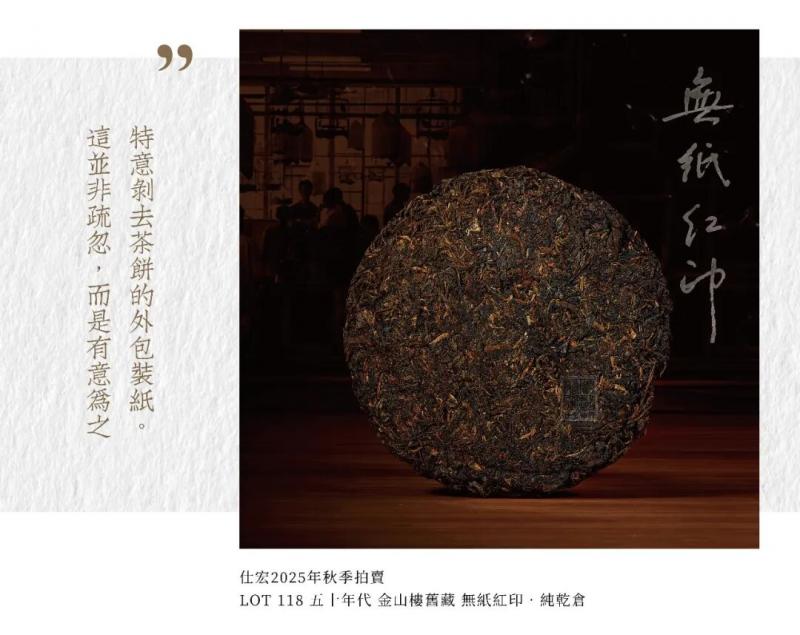 特意剝去茶餅的外包裝紙。
這並非疏忽，而是有意爲之
無紙紅印
仕宏2025年秋季拍賣
LOT 118 五十年代 金山樓舊藏 無紙紅印·純乾倉